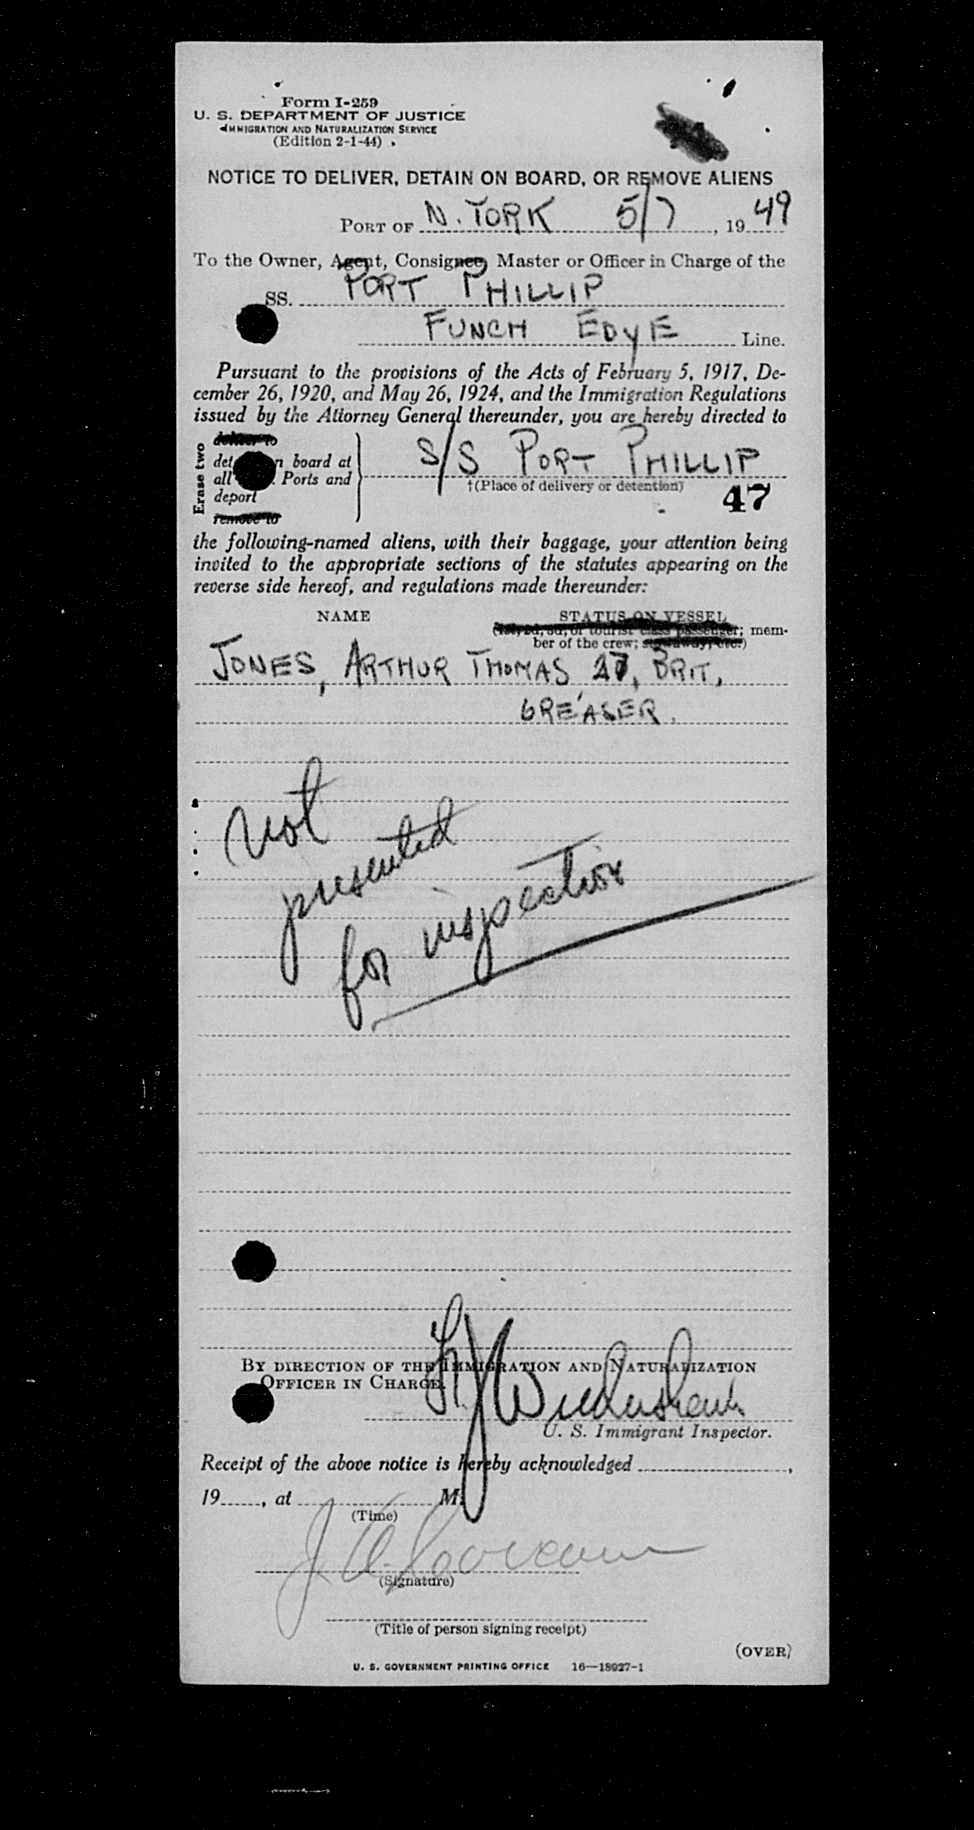 Form I-259
U. S. DEPARTMENT OF JUSTICE
IMMIGRATION AND NATURALIZATION SERVICE
(Edition 2-1-44)
NOTICE TO DELIVER, DETAIN ON BOARD, OR REMOVE ALIENS
PORT OF N. YORK 5/7, 1949
To the Owner, Agent, Consignee, Master or Officer in Charge of the
SS. PORT PHILLIP
FUNCH EDYE Line.
Pursuant to the provisions of the Acts of February 5, 1917, De-
cember 26, 1920, and May 26, 1924, and the Immigration Regulations
issued by the Attorney General thereunder, you are hereby directed to
Erase two
deliver to
n board at
all Ports and
deport
remove to
S/S PORT PHILLIP
†(Place of delivery or detention)
47
the following-named aliens, with their baggage, your attention being
invited to the appropriate sections of the statutes appearing on the
reverse side hereof, and regulations made thereunder:
NAME STATUS ON VESSEL
(1st, 2d, 3d, or tourist class passenger; mem-
ber of the crew; stowaway, etc.)
JONES, ARTHUR THOMAS 27, BRIT,
GREASER.
not
presented
for inspection
BY DIRECTION OF THE IMMIGRATION AND NATURALIZATION
OFFICER IN CHARGE.
U. S. Immigrant Inspector.
Receipt of the above notice is hereby acknowledged ,
19 , at M.
(Time)
(Signature)
(Title of person signing receipt)
(OVER)
U. S. GOVERNMENT PRINTING OFFICE 16—18027-1